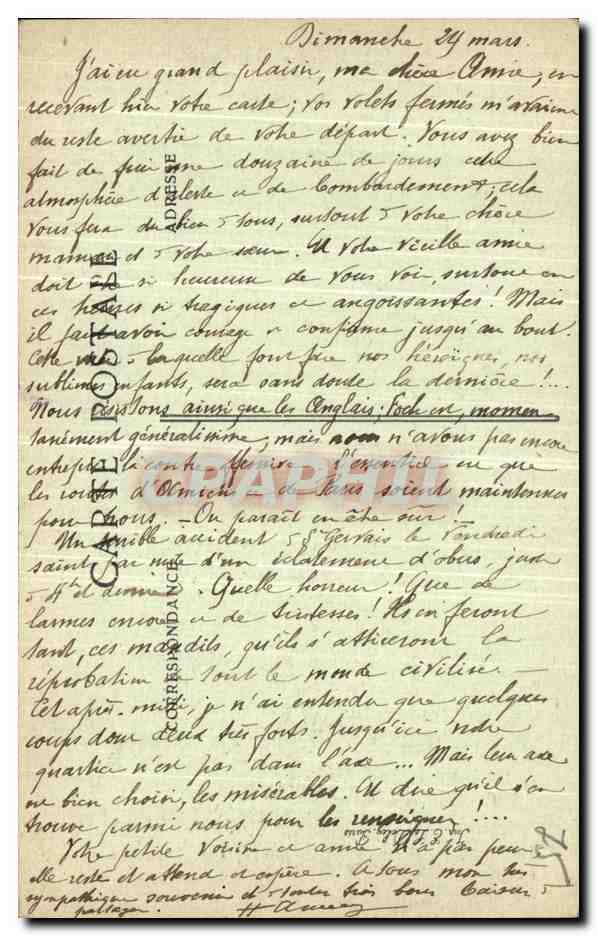 Dimanche 24 mars.
J'ai eu grand plaisir, ma chère Amie, en
recevant hier votre carte; vos volets fermés m'avaient
du reste avertie de votre départ. Vous avez bien
fait de fuir une douzaine de jours cette
atmosphère de et de bombardement, cela
vous fera du bien à tous, surtout à votre chère
maman et à votre sœur. Et votre vieille amie
doit être si heureuse de vous voir, surtout en
ces heures si tragiques et angoissantes! Mais
il faut avoir courage et confiance jusqu'au bout.
Cette à laquelle font face nos héroïques, nos
sublimes enfants, sera sans doute la dernière!...
Nous résistons ainsi que les Anglais; Foch est, momen-
tanément généralissime, mais nous n'avons pas encore
entrepris la contre offensive. L'essentiel est que
les routes d'Amiens et de Paris soient maintenues
pour nous. - On paraît en être sûr!
Un terrible accident à St Gervais le Vendredi
saint par suite d'un éclatement d'obus, juste
à 4h et demie. Quelle horreur! Que de
larmes encore et de tristesses! Ils en feront
tant, ces maudits, qu'ils s'attireront la
réprobation de tout le monde civilisé.
Cet après-midi, je n'ai entendu que quelques
coups dont deux très forts. Jusqu'ici notre
quartier n'est pas dans l'axe... Mais leur axe
est bien choisi, les misérables. Et dire qu'il s'en
trouve parmi nous pour les renseigner!...
Votre petite voisine et amie n'a pas peur
elle reste et attend et espère. A tous mon très
sympathique souvenir et toutes très bons baisers à
partager.
CARTE POSTALE
CORRESPONDANCE
ADRESSE
CPAPHIL
52